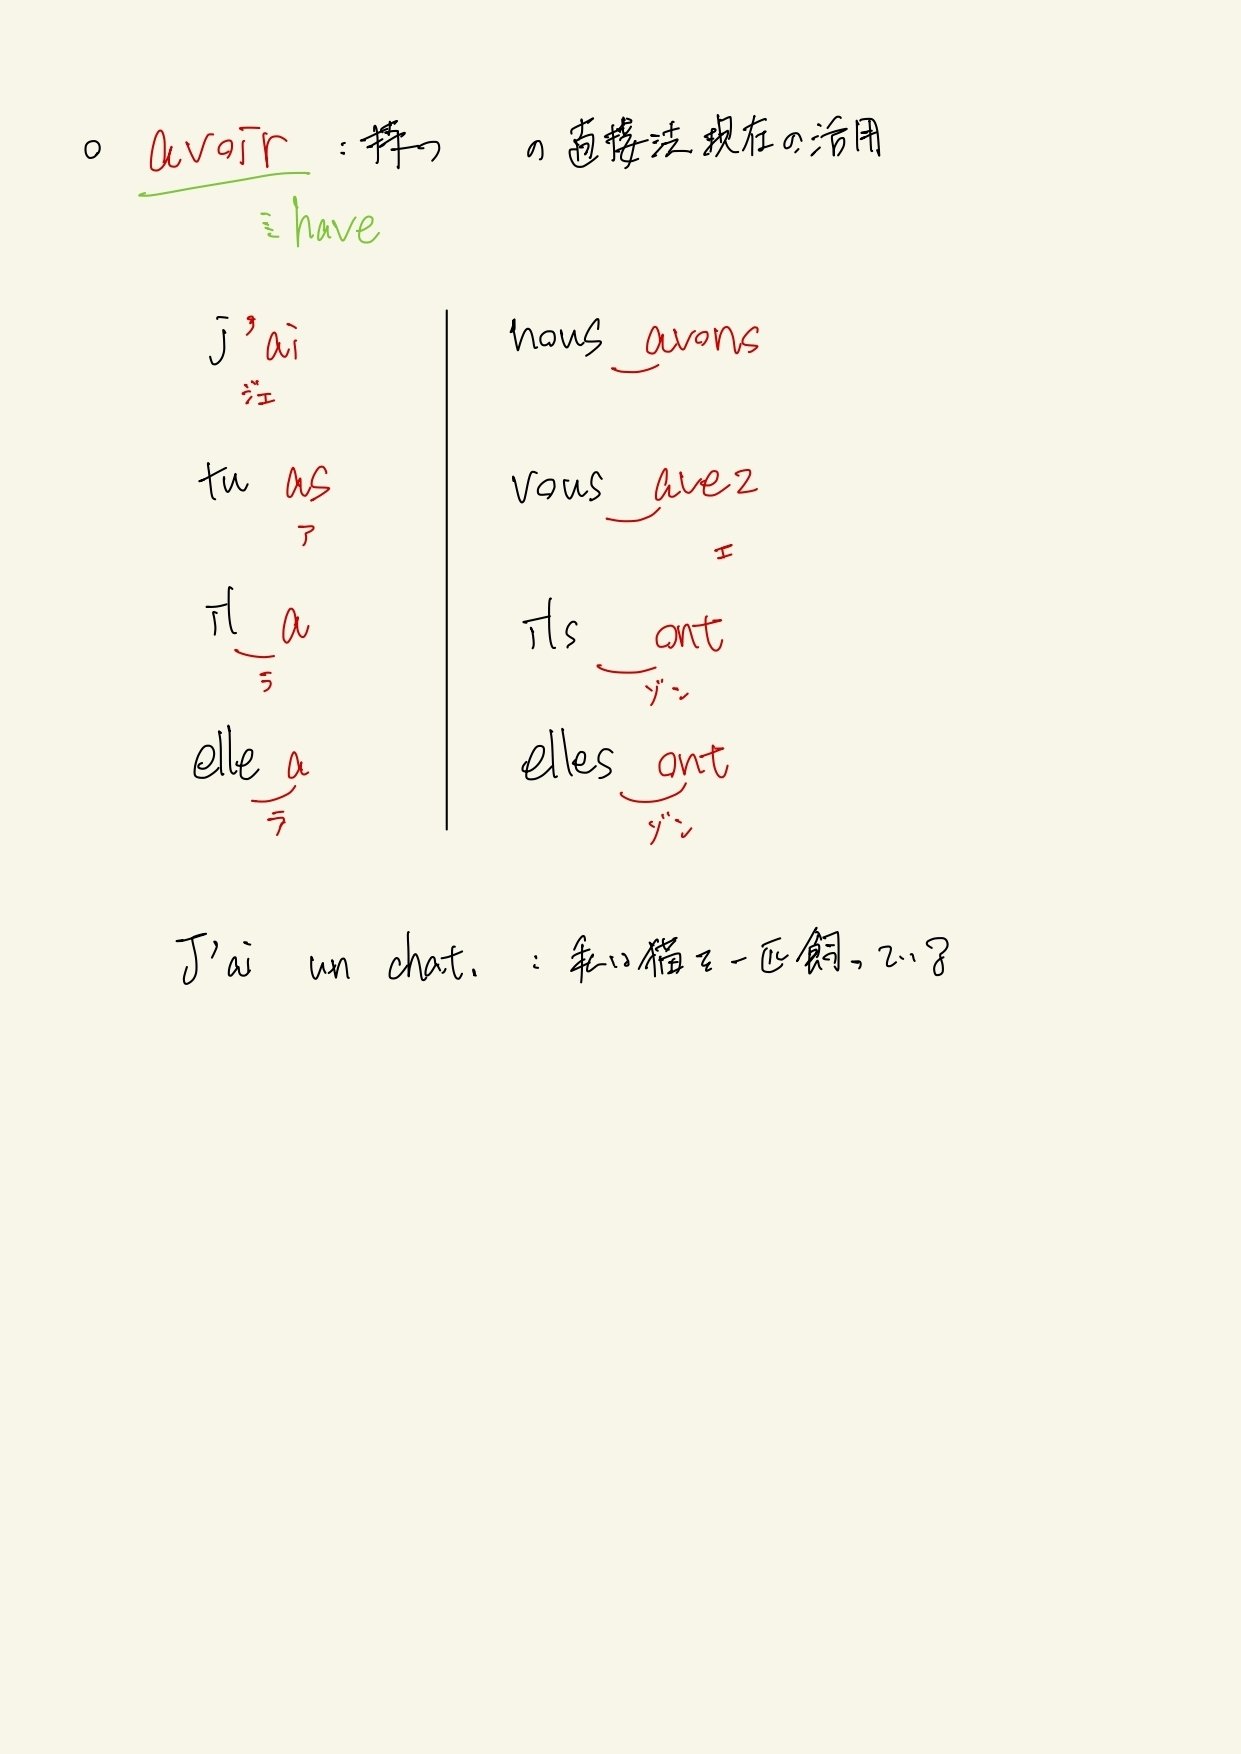 ○ avoir : 持つ の直接法現在の活用
have
j'ai
ジェ
nous avons
tu as
ア
vous avez
エ
il a
ラ
ils ont
ゾン
elle a
ラ
elles ont
ゾン
J'ai un chat. : 私は猫を一匹飼っている